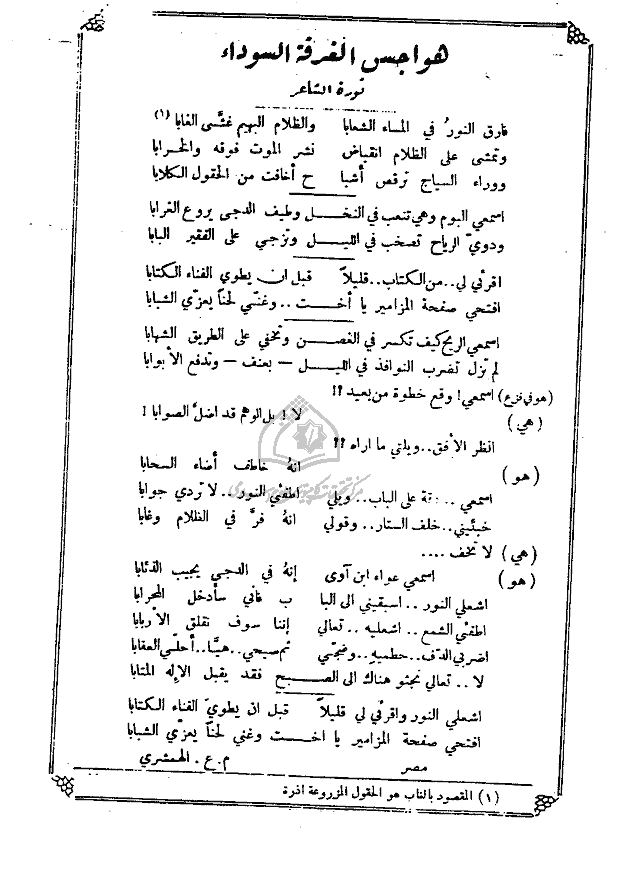 هواجس الغرفة السوداء
ثورة الشاعر
فارق النورُ في المساء الشعابا والظلام البهيم غشّى الغابا (١)
وتمشى على الظلام انقباض نشر الموت فوقه والخرابا
ووراء السياج ترقص أشبا ح أخافت من الحقول الكلابا
اسمعي البوم وهي تنعب في النخـ ـل وطيف الدجى يروع الغرابا
ودويّ الرياح تصخب في الليـ ـل وتزجي على الفقير البابا
اقرئي لي..من الكتاب..قليلاً قبل ان يطوي الفناء الكتابا
افتحي صفحة المزامير يا أخـ ـت..وغنّي لحناً يعزّي الشبابا
اسمعي الريح كيف تكسر في الغصـ ـن وتخفي على الطريق الشهابا
لم تزل تضرب النوافذ في الليـ ـل – بعنف – وتدفع الأبوابا
(هو في فزع) اسمعي! وقع خطوة من بعيد ؟!
(هي) لا! بل الوهم قد اضلّ الصوابا!
انظر الأفق..ويلتي ما اراه ؟؟
(هو) انهُ خاطف أضاء السحابا
اسمعي .. على الباب..ويلي اطفئي النور..لا تردي جوابا
خبئيني..خلف الستار..وقولي انهُ فرّ في الظلام وغابا
(هي) لا تخف ....
(هو) اسمعي عواء ابن آوى إنهُ في الدجى يجيب الذئابا
اشعلي النور..اسبقيني الى البا ب فاني سأدخل المحرابا
اطفئي الشمع..اشعليه..تعالي إننا سوف نقلق الأربابا
اضربي الدف..حطميه..وضجّي ثم سيحي..هيّا..أحلّي العقابا
لا..تعالي نجثو هناك الى الصبـ ـح فقد يقبل الإله المتابا
اشعلي النور واقرئي لي قليلاً قبل ان يطويّ الفناء الكتابا
افتحي صفحة المزامير يا اخـ ـت وغني لحناً يعزّي الشبابا
مصر م.ع.الهمشري
(١) المقصود بالغاب هو الحقول المزروعة اذرة